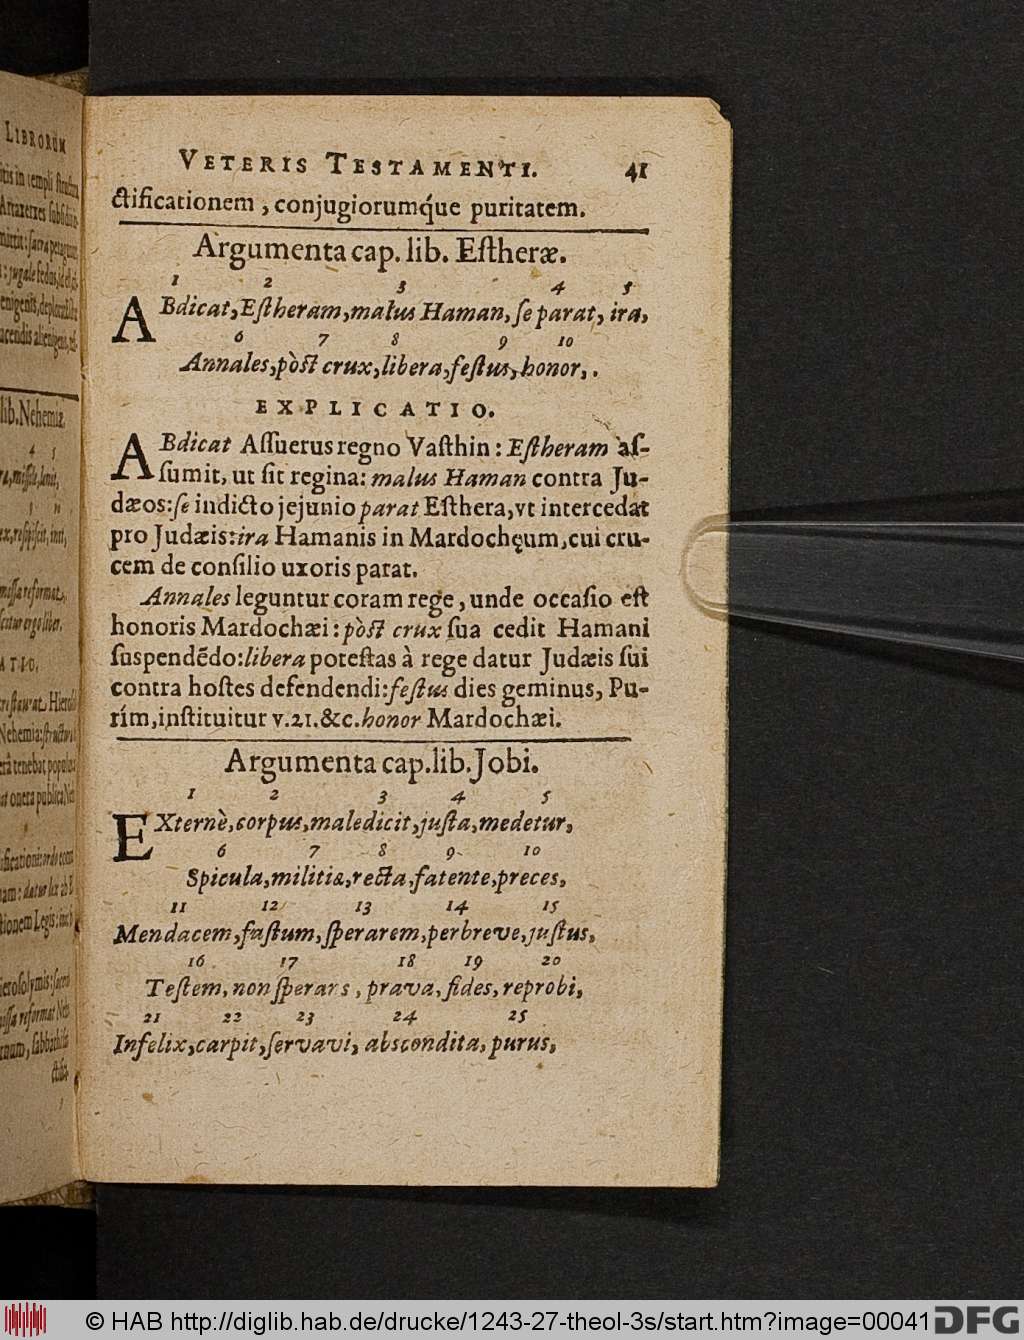 LIBRORUM
VETERIS TESTAMENTI. 41
ctificationem, conjugiorumq́ue puritatem.
Argumenta cap. lib. Eſtheræ.
1 2 3 4 5
ABdicat, Eſtheram, malus Haman, ſe parat, ira,
6 7 8 9 10
Annales, pòſt crux, libera, feſtus, honor,.
EXPLICATIO.
ABdicat Aſſuerus regno Vaſthin: Eſtheram aſ-
ſumit, ut ſit regina: malus Haman contra Ju-
dæos: ſe indicto jejunio parat Eſthera, vt intercedat
pro Judæis: ira Hamanis in Mardochęum, cui cru-
cem de conſilio uxoris parat.
Annales leguntur coram rege, unde occaſio eſt
honoris Mardochæi: pòſt crux ſua cedit Hamani
ſuspendēdo: libera poteſtas à rege datur Judæis ſui
contra hoſtes defendendi: feſtus dies geminus, Pu-
rím, inſtituitur v.21.&c. honor Mardochæi.
Argumenta cap. lib. Jobi.
1 2 3 4 5
EXternè, corpus, maledicit, juſta, medetur,
6 7 8 9 10
Spicula, militia, recta, fatente, preces,
11 12 13 14 15
Mendacem, faſtum, ſperarem, perbreve, juſtus,
16 17 18 19 20
Teſtem, non ſperars, prava, fides, reprobi,
21 22 23 24 25
Infelix, carpit, ſervavi, abscondita, purus,
© HAB http://diglib.hab.de/drucke/1243-27-theol-3s/start.htm?image=00041
DFG